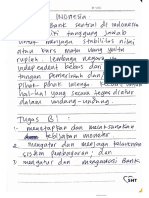 INDONESIA
Bank sentral di Indonesia
tanggung jawab
untuk menjaga stabilitas nilai
atau kurs mata uang yaitu
rupiah. lembaga negara yg
independen bebas dari
tangan pemerintah dan/
pihak-pihak lainnya kecuali
hal-hal yang secara tegas diatur
dalam undang-undang.
Tugas BI :
1. menetapkan dan melaksanakan
kebijakan moneter
2. mengatur dan menjaga kelancaran
sistem pembayaran, dan
3. mengatur dan mengawasi Bank